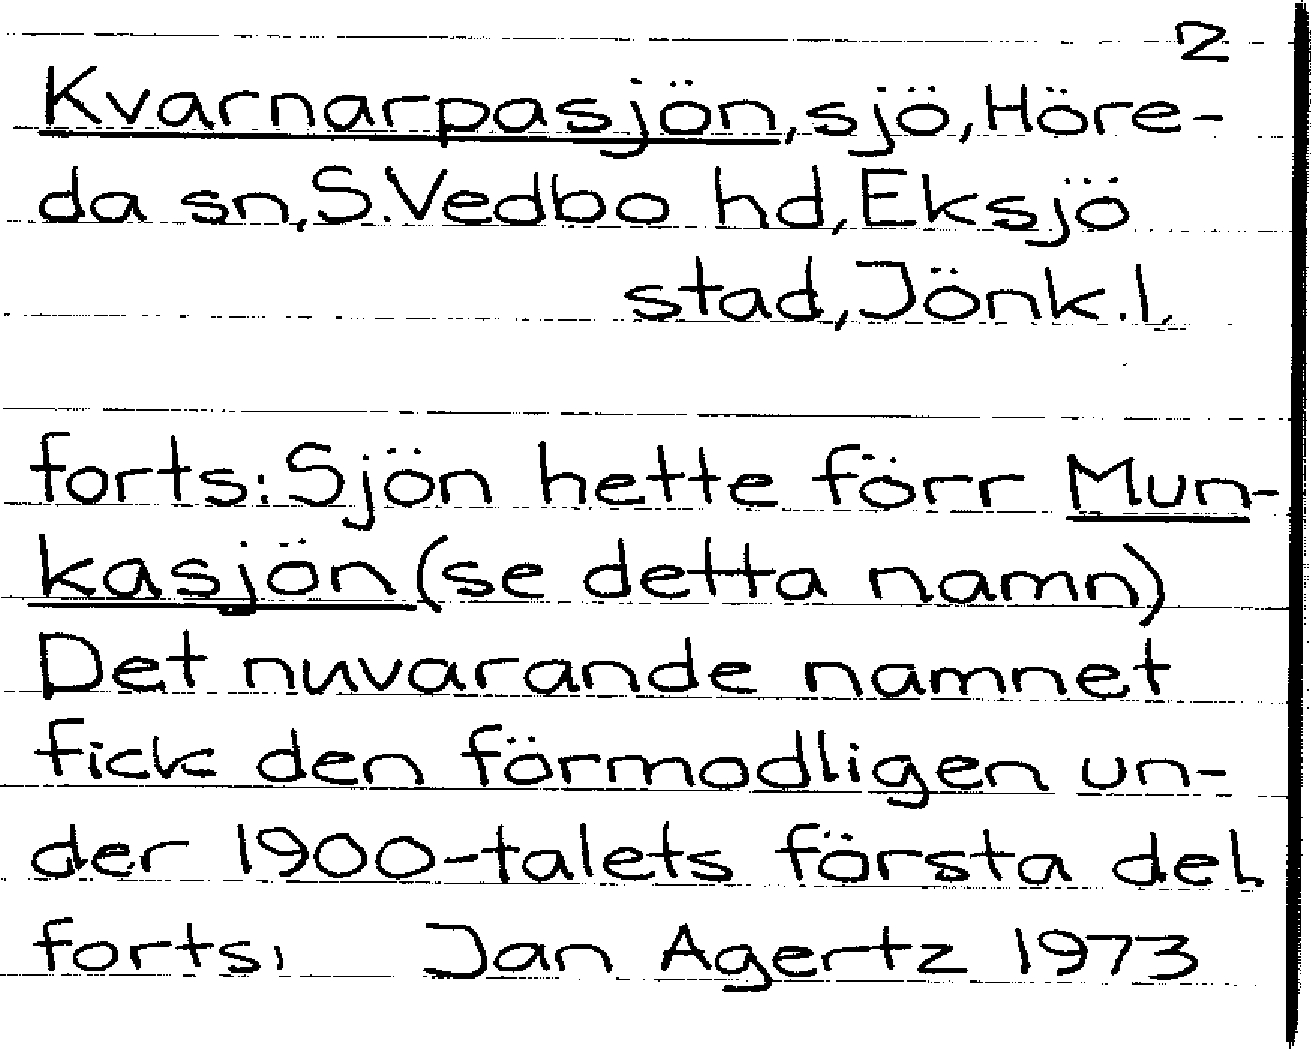 2
Kvarnarpasjön, sjö, Höre-
da sn, S. Vedbo hd, Eksjö
stad, Jönk. l.
forts: Sjön hette förr Mun-
kasjön (se detta namn)
Det nuvarande namnet
fick den förmodligen un-
der 1900-talets första del
forts: Jan Agertz 1973